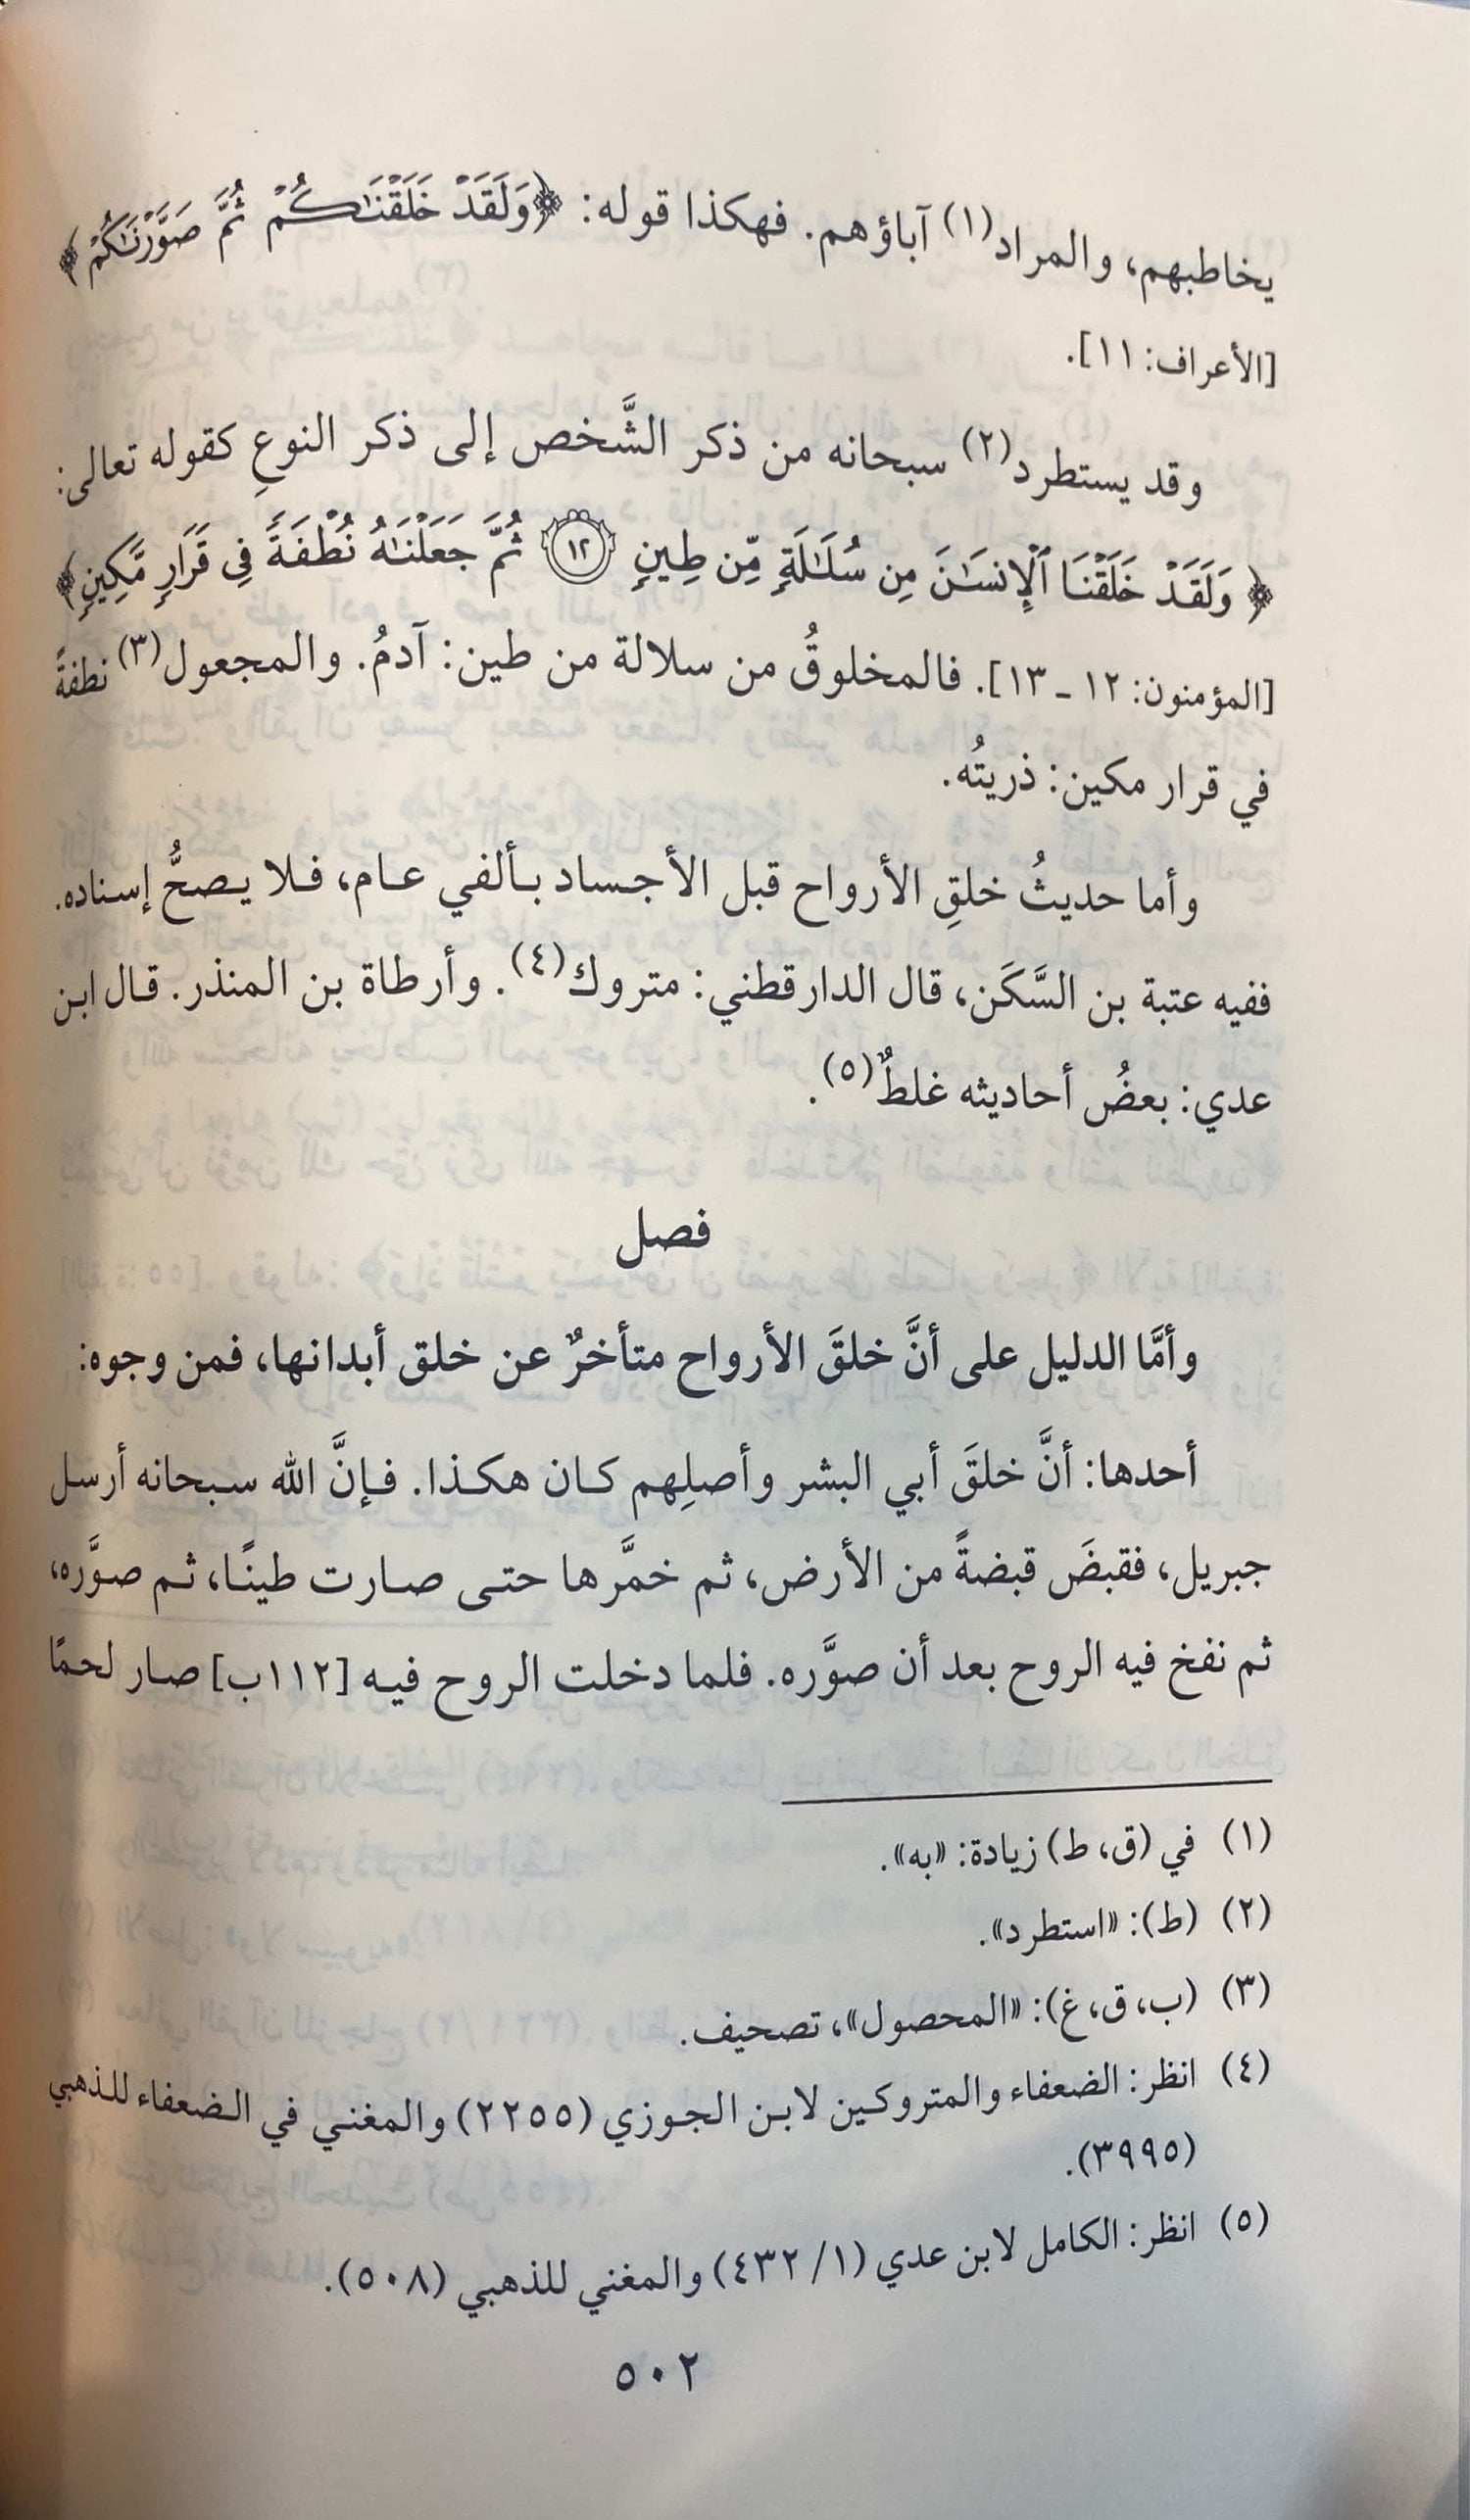 يخاطبهم، والمراد(١) آباؤهم. فهكذا قوله: ﴿وَلَقَدْ خَلَقْنَٰكُمْ ثُمَّ صَوَّرْنَٰكُمْ﴾
[الأعراف: ١١].
وقد يستطرد(٢) سبحانه من ذكر الشَّخص إلى ذكر النوعِ كقوله تعالى:
﴿وَلَقَدْ خَلَقْنَا ٱلْإِنسَٰنَ مِن سُلَٰلَةٍ مِّن طِينٍ ١٢ ثُمَّ جَعَلْنَٰهُ نُطْفَةً فِى قَرَارٍ مَّكِينٍ﴾
[المؤمنون: ١٢ ـ ١٣]. فالمخلوقُ من سلالة من طين: آدمُ. والمجعول(٣) نطفةً
في قرار مكين: ذريتُه.
وأما حديثُ خلقِ الأرواح قبل الأجساد بألفي عام، فلا يصحُّ إسناده.
ففيه عتبة بن السَّكَن، قال الدارقطني: متروك(٤). وأرطاة بن المنذر. قال ابن
عدي: بعضُ أحاديثه غلطٌ(٥).
فصل
وأمَّا الدليل على أنَّ خلقَ الأرواح متأخرٌ عن خلق أبدانها، فمن وجوه:
أحدها: أنَّ خلقَ أبي البشر وأصلِهم كان هكذا. فإنَّ الله سبحانه أرسل
جبريل، فقبضَ قبضةً من الأرض، ثم خمَّرها حتى صارت طينًا، ثم صوَّره،
ثم نفخ فيه الروح بعد أن صوَّره. فلما دخلت الروح فيه [١١٢ب] صار لحمًا
(١) في (ق، ط) زيادة: «به».
(٢) (ط): «استطرد».
(٣) (ب، ق، غ): «المحصول»، تصحيف.
(٤) انظر: الضعفاء والمتروكين لابن الجوزي (٢٢٥٥) والمغني في الضعفاء للذهبي
(٣٩٩٥).
(٥) انظر: الكامل لابن عدي (١/ ٤٣٢) والمغني للذهبي (٥٠٨).
٥٠٢